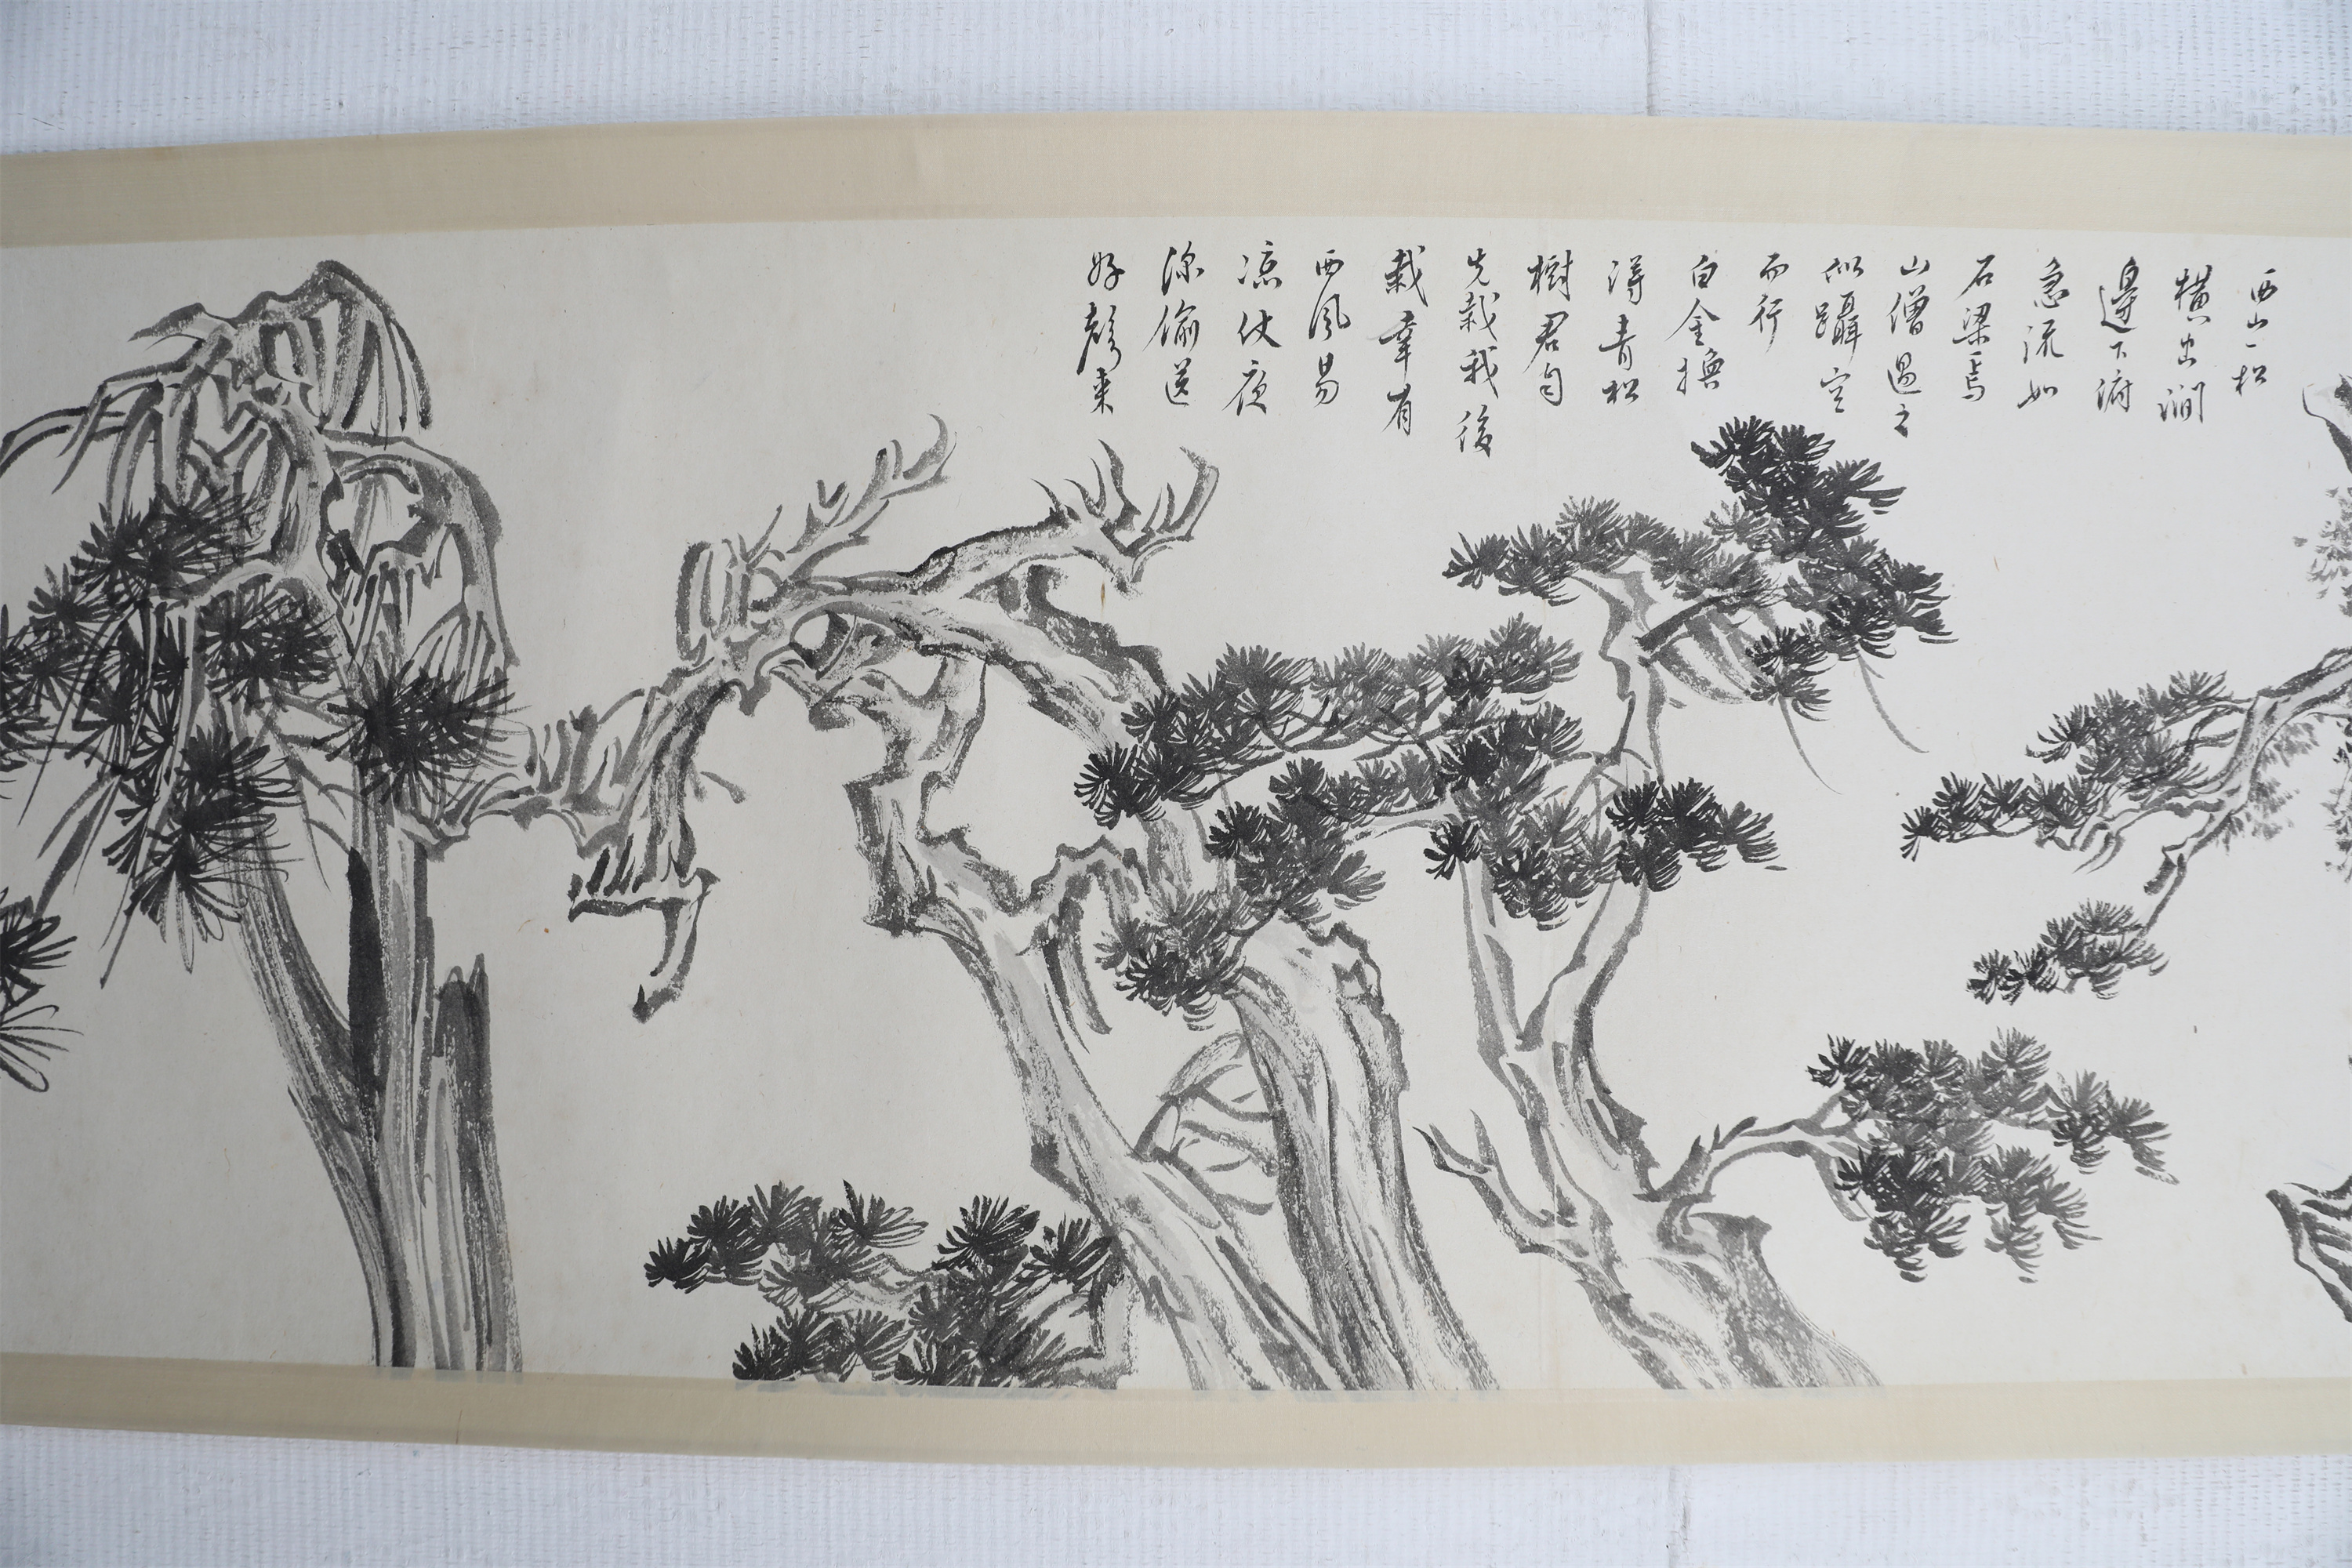 西山一松
橫出澗
邊下俯
急流如
石梁焉
山僧過之
似躡空
而行
白金換
得青松
樹君自
先栽我後
栽幸有
西風易
涼仗夜
深偷送
好聲來